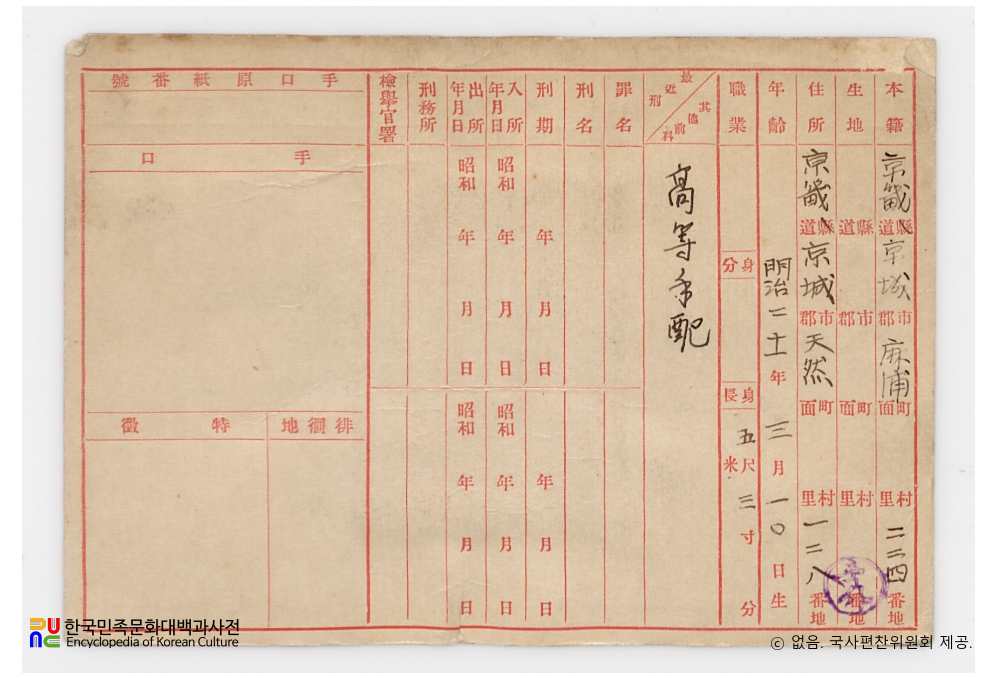 本籍 京畿、道縣 京城 市郡 麻浦 町面 村里 二二四 番地
生地 道縣 市郡 町面 村里 番地
住所 京畿、道縣 京城 市郡 天然 町面 村里 一二八 番地
年齡 明治二十一年三月一〇日生
職業
身分
身長 五尺三寸分
米
最近刑
其他前科
高等手配
罪名
刑名
刑期 年月日
年月日
入所年月日 昭和年月日
昭和年月日
出所年月日 昭和年月日
昭和年月日
刑務所
檢擧官署
手口原紙番號
手口
徘徊地
特徵
한국민족문화대백과사전
Encyclopedia of Korean Culture
© 없음. 국사편찬위원회 제공.